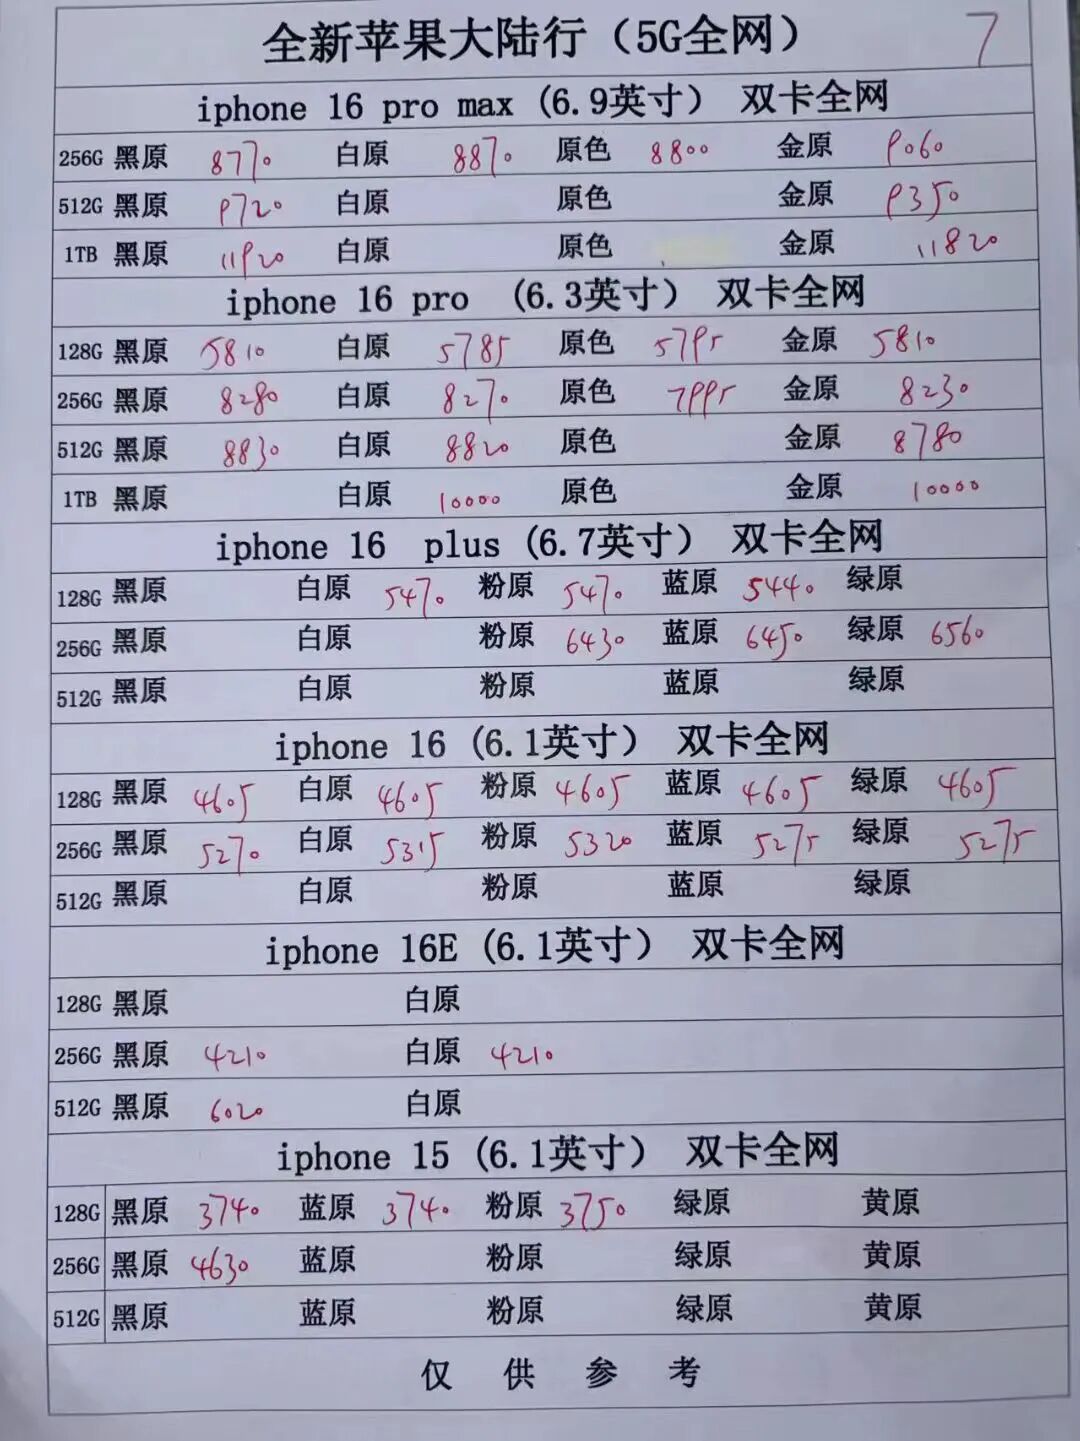 全新苹果大陆行（5G全网） 7
iphone 16 pro max (6.9英寸） 双卡全网
256G 黑原 8770 白原 8870 原色 8800 金原 9060
512G 黑原 9720 白原 原色 金原 9350
1TB 黑原 11920 白原 原色 金原 11820
iphone 16 pro (6.3英寸） 双卡全网
128G 黑原 5810 白原 5785 原色 5795 金原 5810
256G 黑原 8280 白原 8270 原色 7995 金原 8230
512G 黑原 8830 白原 8820 原色 金原 8780
1TB 黑原 白原 10000 原色 金原 10000
iphone 16 plus (6.7英寸） 双卡全网
128G 黑原 白原 5470 粉原 5470 蓝原 5440 绿原
256G 黑原 白原 粉原 6430 蓝原 6450 绿原 6560
512G 黑原 白原 粉原 蓝原 绿原
iphone 16 (6.1英寸） 双卡全网
128G 黑原 4605 白原 4605 粉原 4605 蓝原 4605 绿原 4605
256G 黑原 5270 白原 5315 粉原 5320 蓝原 5275 绿原 5275
512G 黑原 白原 粉原 蓝原 绿原
iphone 16E (6.1英寸） 双卡全网
128G 黑原 白原
256G 黑原 4210 白原 4210
512G 黑原 6020 白原
iphone 15 (6.1英寸） 双卡全网
128G 黑原 3740 蓝原 3740 粉原 3750 绿原 黄原
256G 黑原 4630 蓝原 粉原 绿原 黄原
512G 黑原 蓝原 粉原 绿原 黄原
仅 供 参 考